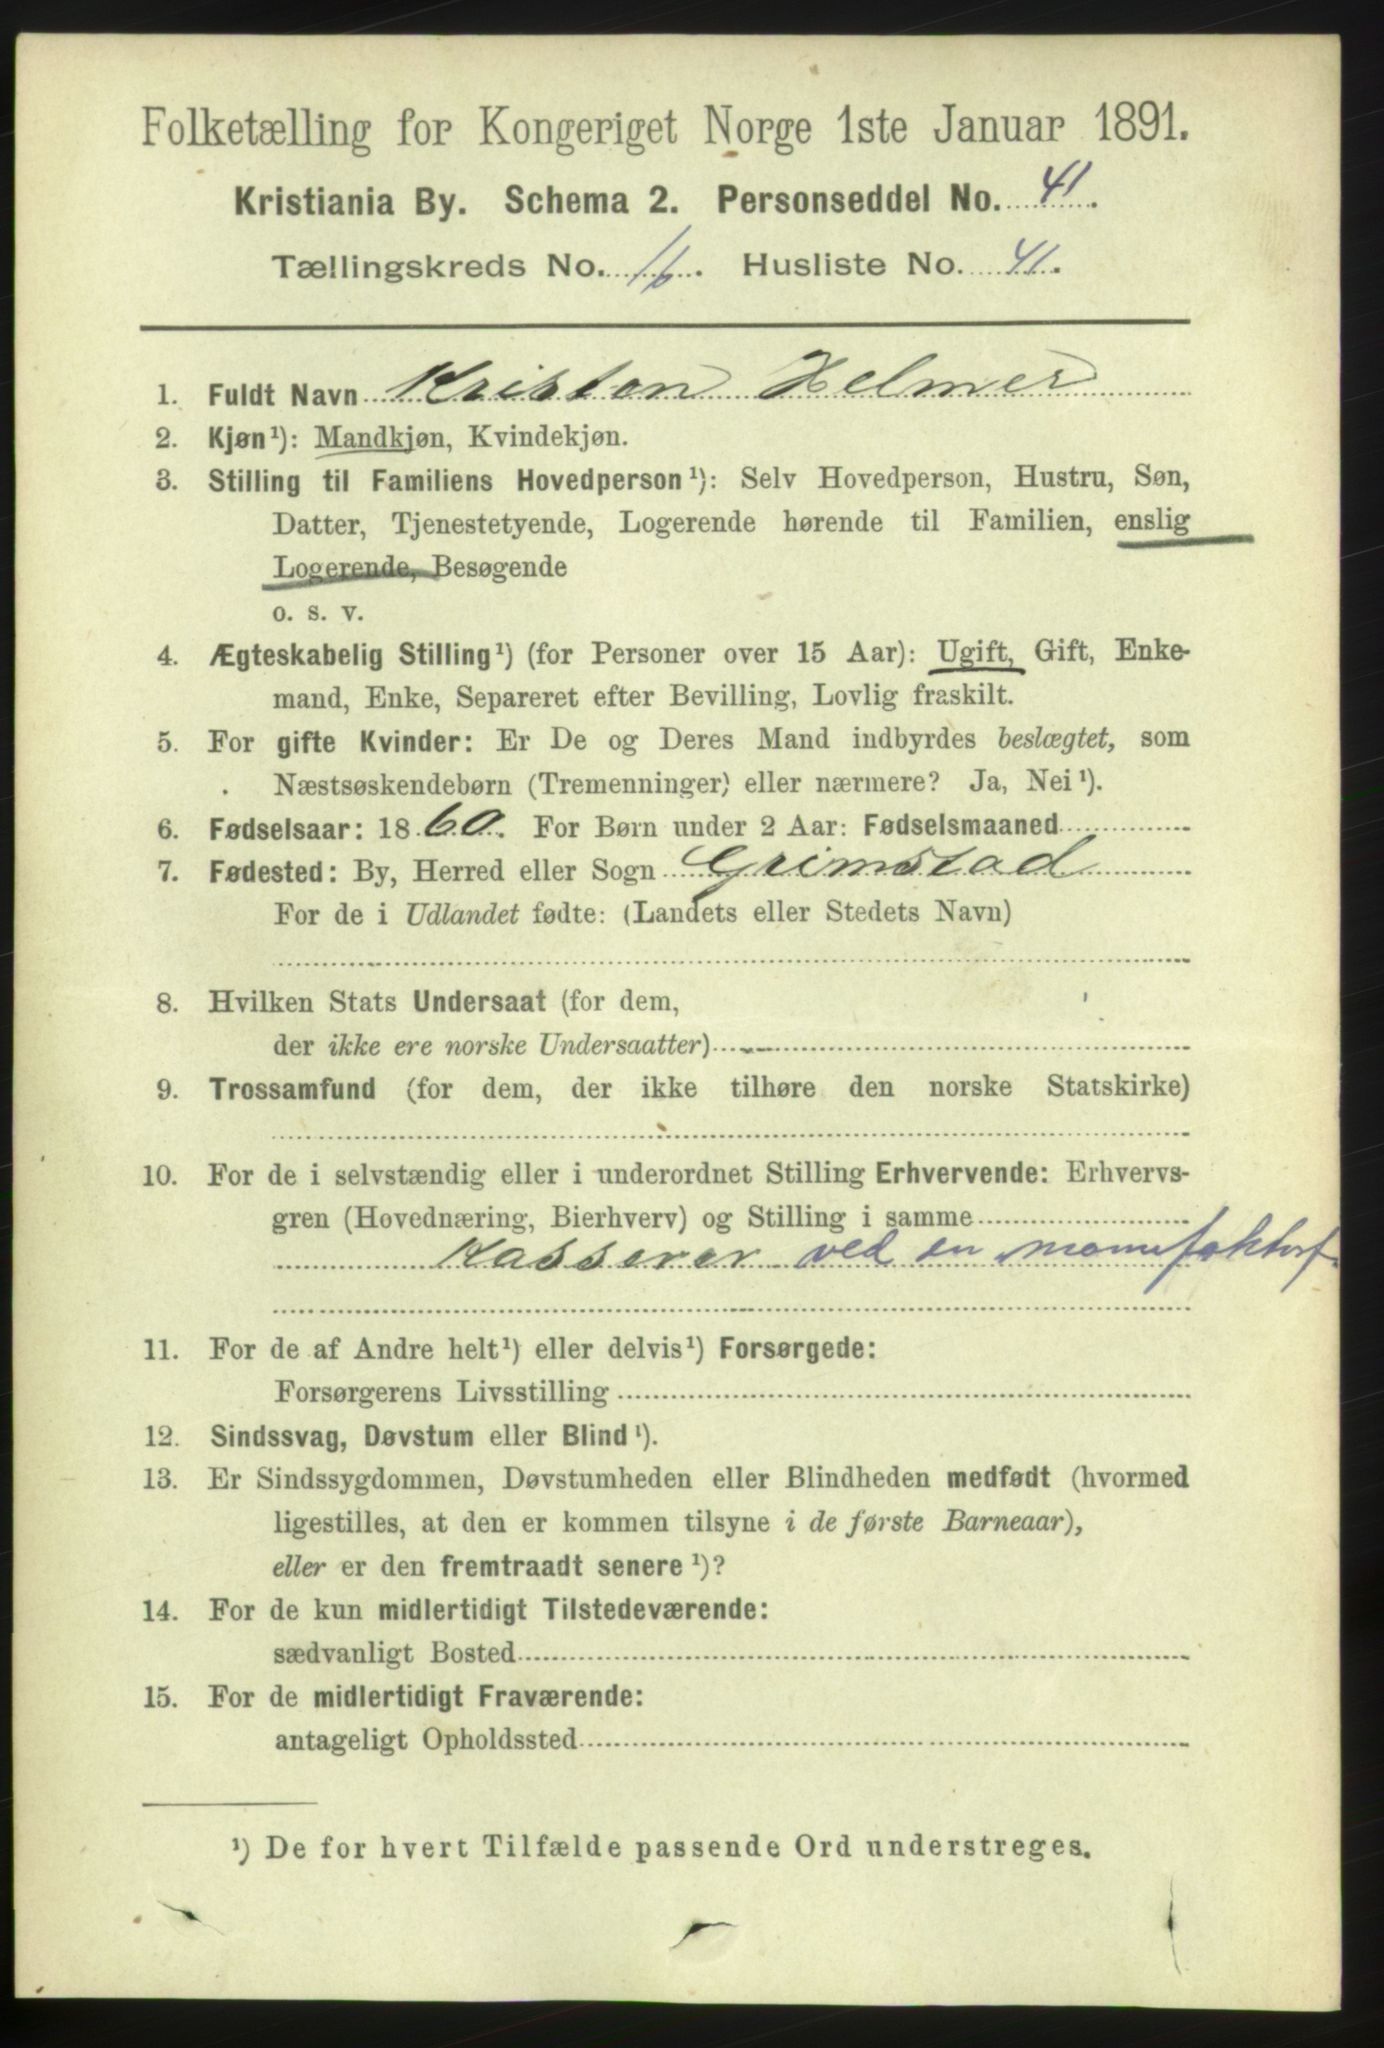 Folketælling for Kongeriget Norge 1ste Januar 1891.
Kristiania By. Schema 2. Personseddel No. 41.
Tællingskreds No. 16. Husliste No. 41.
1. Fuldt Navn Kristen Helmer
2. Kjøn¹): Mandkjøn, Kvindekjøn.
3. Stilling til Familiens Hovedperson¹): Selv Hovedperson, Hustru, Søn,
Datter, Tjenestetyende, Logerende hørende til Familien, enslig
Logerende, Besøgende
o. s. v.
4. Ægteskabelig Stilling¹) (for Personer over 15 Aar): Ugift, Gift, Enke-
mand, Enke, Separeret efter Bevilling, Lovlig fraskilt.
5. For gifte Kvinder: Er De og Deres Mand indbyrdes beslægtet, som
Næstsøskendebørn (Tremenninger) eller nærmere? Ja, Nei¹).
6. Fødselsaar: 1860. For Børn under 2 Aar: Fødselsmaaned
7. Fødested: By, Herred eller Sogn Grimstad
For de i Udlandet fødte: (Landets eller Stedets Navn)
8. Hvilken Stats Undersaat (for dem,
der ikke ere norske Undersaatter)
9. Trossamfund (for dem, der ikke tilhøre den norske Statskirke)
10. For de i selvstændig eller i underordnet Stilling Erhvervende: Erhvervs-
gren (Hovednæring, Bierhverv) og Stilling i samme
Kasserer ved en manufakturf.
11. For de af Andre helt¹) eller delvis¹) Forsørgede:
Forsørgerens Livsstilling
12. Sindssvag, Døvstum eller Blind¹).
13. Er Sindssygdommen, Døvstumheden eller Blindheden medfødt (hvormed
ligestilles, at den er kommen tilsyne i de første Barneaar),
eller er den fremtraadt senere¹)?
14. For de kun midlertidigt Tilstedeværende:
sædvanligt Bosted
15. For de midlertidigt Fraværende:
antageligt Opholdssted
¹) De for hvert Tilfælde passende Ord understreges.